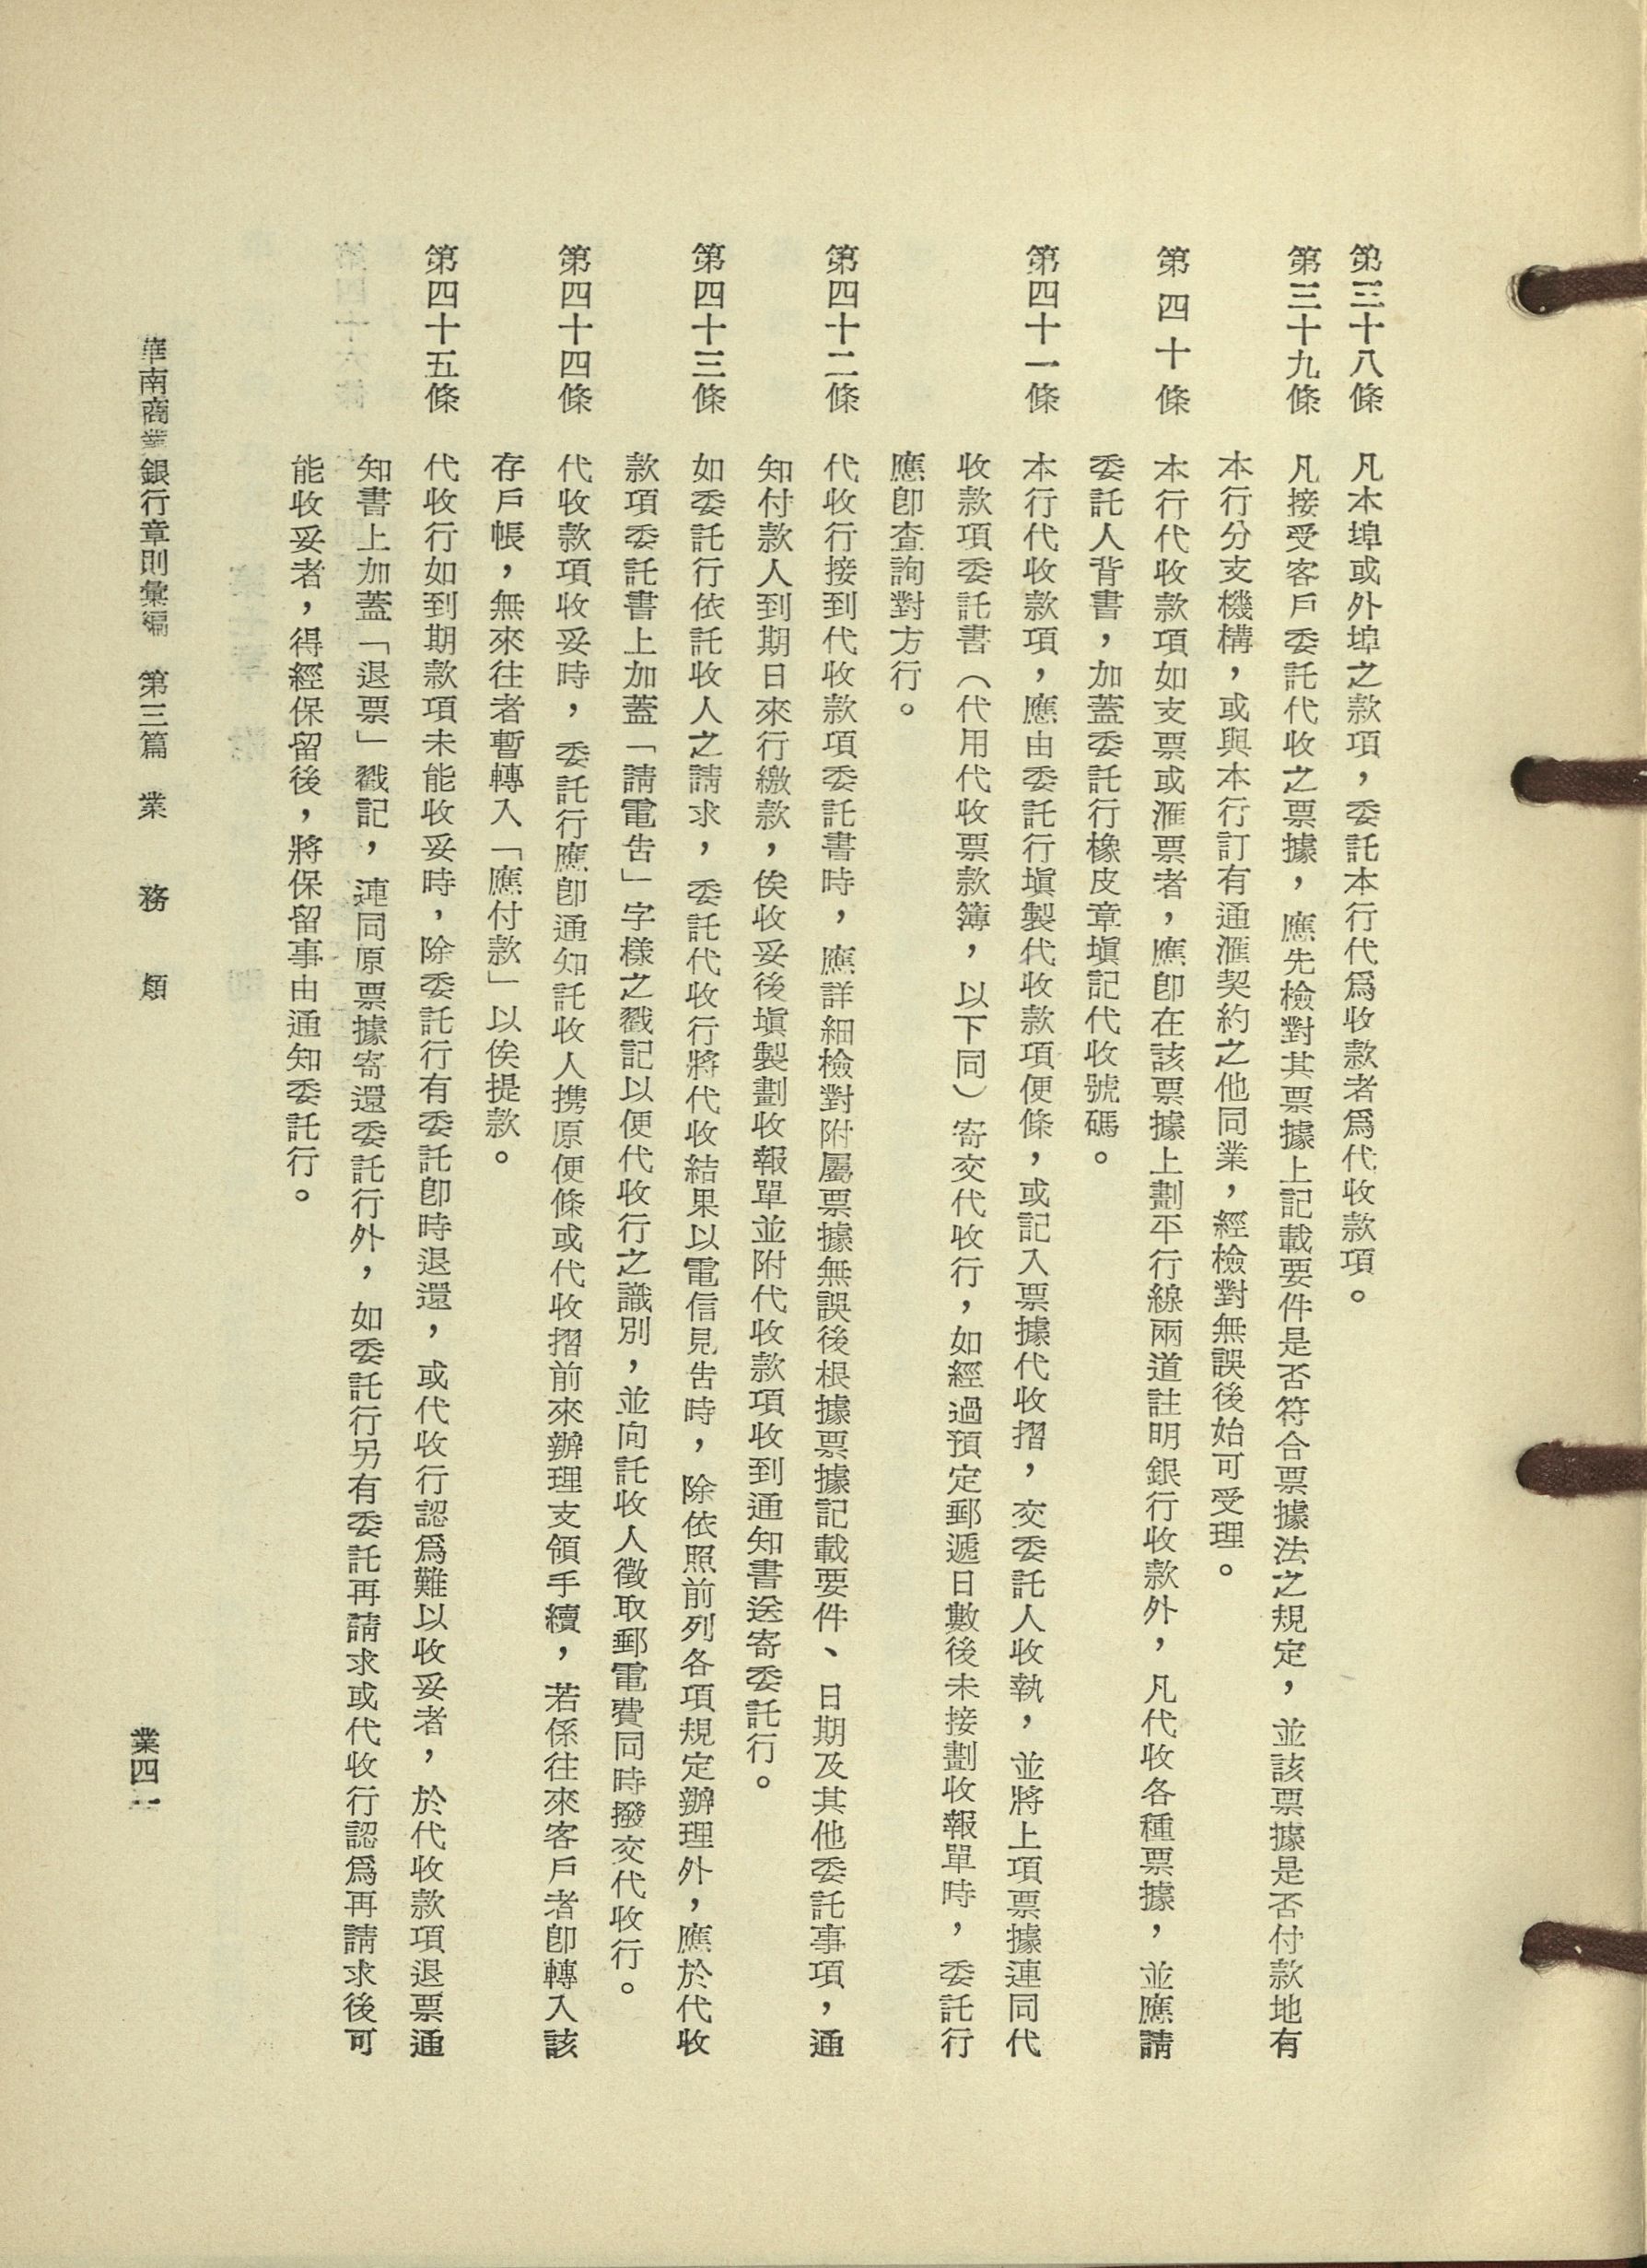 第三十八條　凡本埠或外埠之款項，委託本行代爲收款者爲代收款項。
第三十九條　凡接受客戶委託代收之票據，應先檢對其票據上記載要件是否符合票據法之規定，並該票據是否付款地有
本行分支機構，或與本行訂有通滙契約之他同業，經檢對無誤後始可受理。
第四十條　本行代收款項如支票或滙票者，應卽在該票據上劃平行線兩道註明銀行收款外，凡代收各種票據，並應請
委託人背書，加蓋委託行橡皮章塡記代收號碼。
第四十一條　本行代收款項，應由委託行塡製代收款項便條，或記入票據代收摺，交委託人收執，並將上項票據連同代
收款項委託書（代用代收票款簿，以下同）寄交代收行，如經過預定郵遞日數後未接劃收報單時，委託行
應卽查詢對方行。
第四十二條　代收行接到代收款項委託書時，應詳細檢對附屬票據無誤後根據票據記載要件、日期及其他委託事項，通
知付款人到期日來行繳款，俟收妥後塡製劃收報單並附代收款項收到通知書送寄委託行。
第四十三條　如委託行依託收人之請求，委託代收行將代收結果以電信見告時，除依照前列各項規定辦理外，應於代收
款項委託書上加蓋「請電告」字樣之戳記以便代收行之識別，並向託收人徵取郵電費同時撥交代收行。
第四十四條　代收款項收妥時，委託行應卽通知託收人携原便條或代收摺前來辦理支領手續，若係往來客戶者卽轉入該
存戶帳，無來往者暫轉入「應付款」以俟提款。
第四十五條　代收行如到期款項未能收妥時，除委託行有委託卽時退還，或代收行認爲難以收妥者，於代收款項退票通
知書上加蓋「退票」戳記，連同原票據寄還委託行外，如委託行另有委託再請求或代收行認爲再請求後可
能收妥者，得經保留後，將保留事由通知委託行。
華南商業銀行章則彙編　第三篇　業務類
業四一